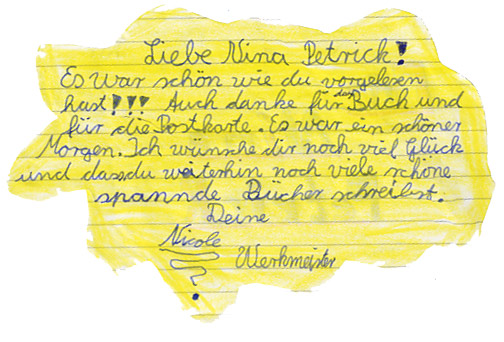 Liebe Nina Petrick!
Es war schön wie du vorgelesen
hast!!!! Auch danke für das Buch und
für die Postkarte. Es war ein schöner
Morgen. Ich wünsche dir noch viel Glück
und dass du weiterhin noch viele schöne
spannde Bücher schreibst.
Deine
Nicole
Werkmeister